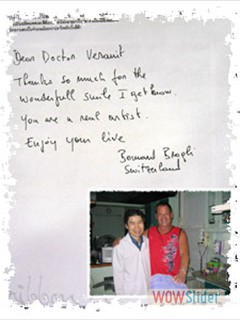 Dear Doctor Veranit
Thanks so much for the
wonderfull smile I get know.
You are a real artist.
Enjoy your live
Bernard Brogli
Switzerland
WOWSlider